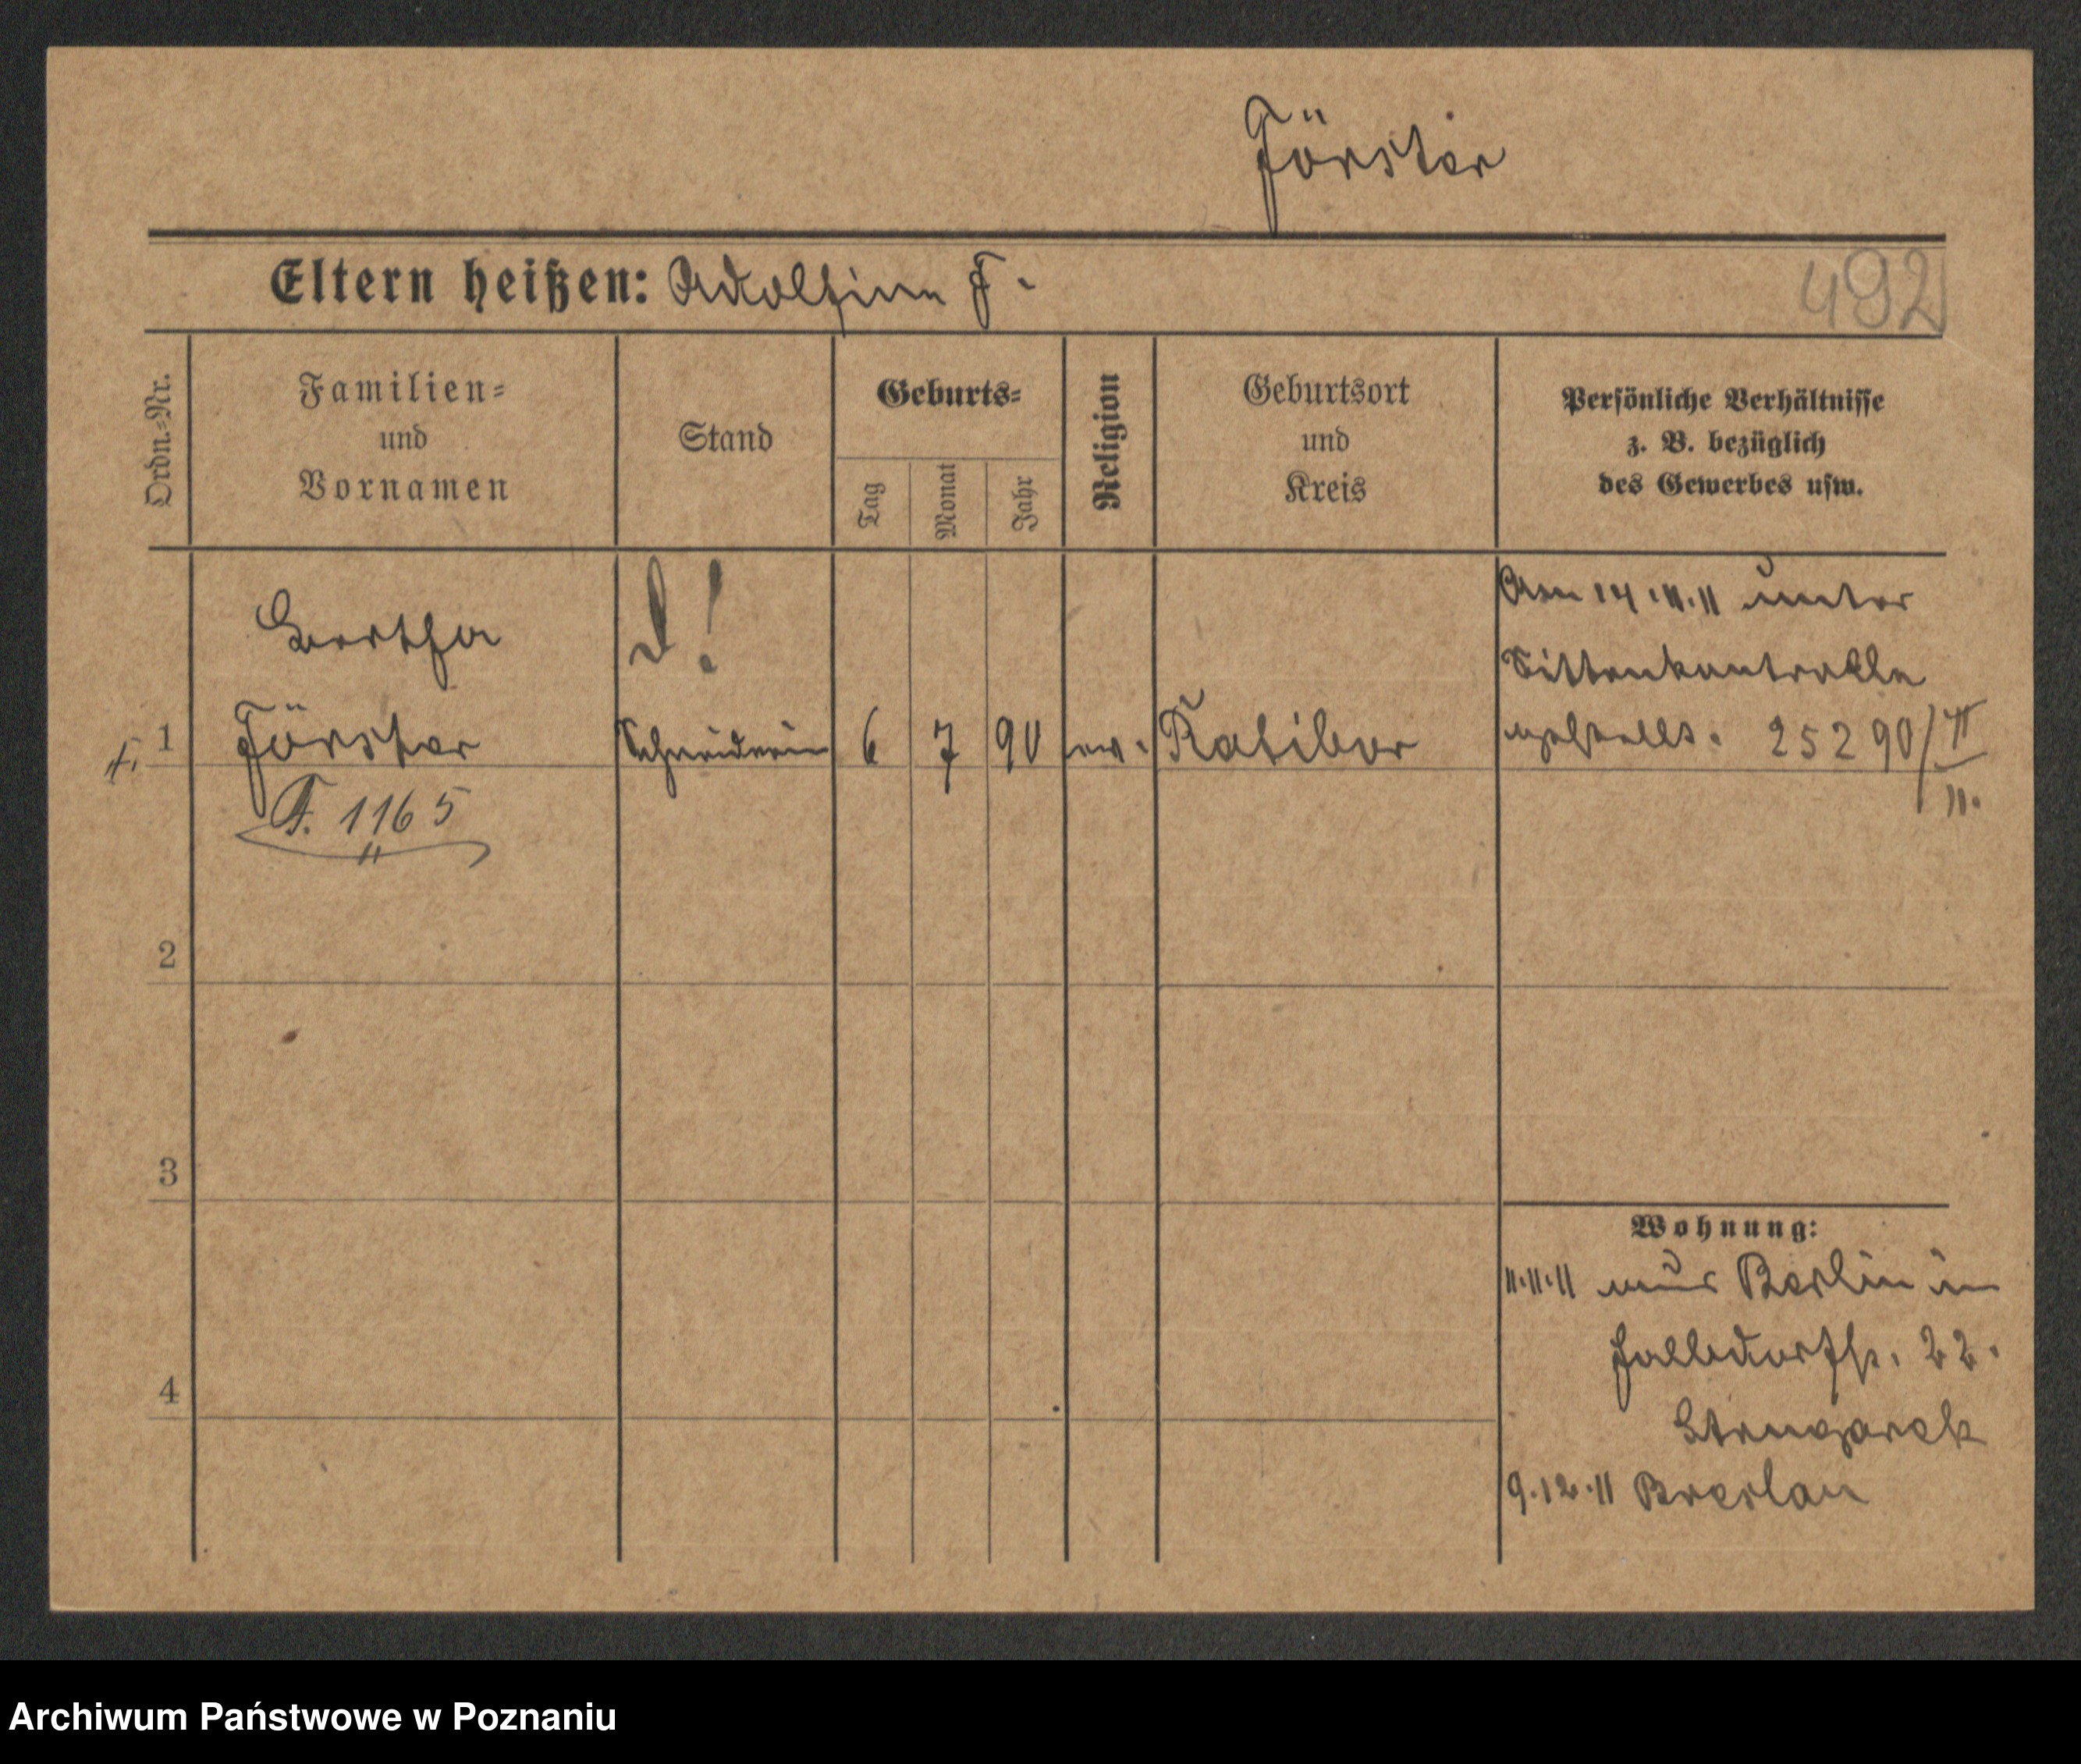 Förster
Eltern heißen: Adolfine F.
492
Ordn.-Nr.
Familien-
und
Vornamen
Stand
Geburts-
Tag
Monat
Jahr
Religion
Geburtsort
und
Kreis
Persönliche Verhältnisse
z. B. bezüglich
des Gewerbes usw.
Bertha
Am 14.11.11 unter
Sittenkontrolle
1 Förster Schneiderin 6 7 90 ev. Ratibor gestellt. 25290/II
11.
F. 1165
2
3
4
Wohnung:
11.11.11 aus Berlin in
Halbdorfstr. 22.
9.12.11 Breslau
Archiwum Państwowe w Poznaniu